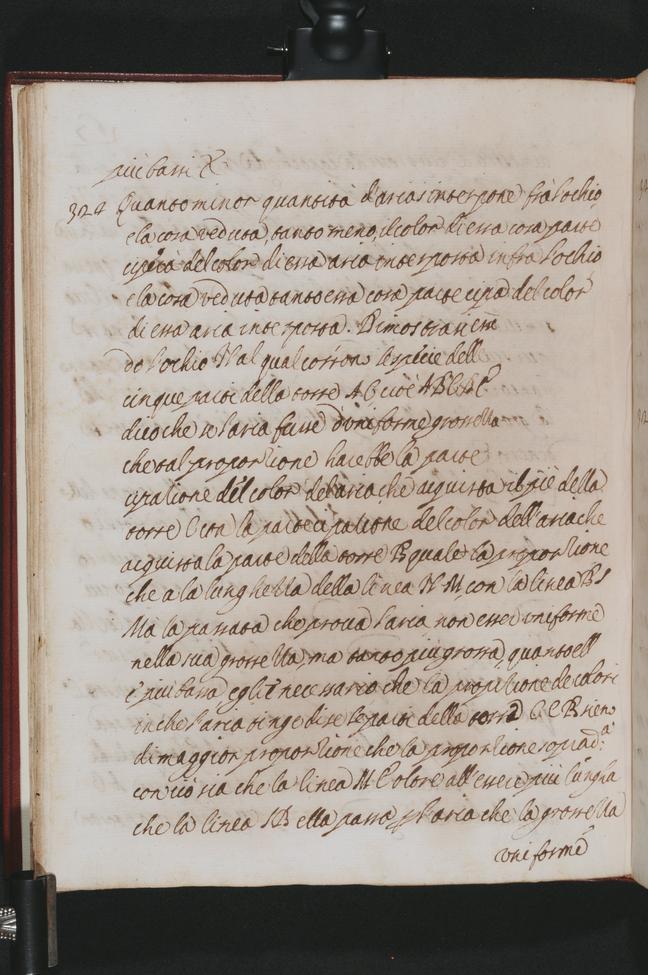 piu bassi
324 Quanto minor quantità d'aria s'interpone fra l'ochio
e la cosa veduta, tanto meno, il color di essa cosa parte
cipera del color di essa aria interposta infra l'ochio
e la cosa veduta tanto essa cosa partecipa del color
di essa aria interposta. Dimostrasi essen
do l'ochio N al qual corron le spetie dell
cinque parti della torre A C cioè A B C
dico che se l'aria fusse d'uniforme grossezza
che tal proportione harebbe la parte
cipatione del color del aria che acquista il piè della
torre C con la participatione del color dell'aria che
acquista la parte della torre B quale la proportione
che a la lunghezza della linea N M con la linea B S
Ma la passata che prova l'aria non esser uniforme
nella sua grossezza, ma tanto piu grossa, quanto ell
è piu bassa egli è necessario che la proportione de colori
in che l'aria tinge di se le parti della torre C e B sieno
di maggior proportione che la proportione sopra d.ª
con ciò sia che la linea M C oltre all'essere piu lungha
che la linea S B ella passa p l'aria che la grossezza
uniforme